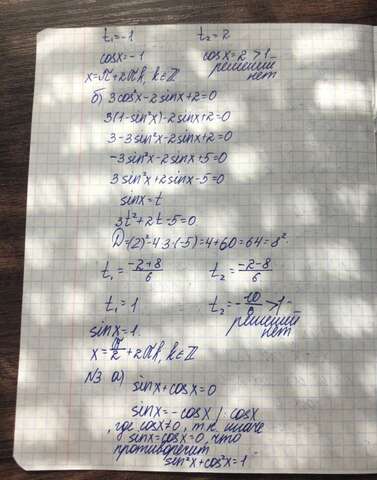 t₁=-1 t₂=2
cosx=-1 cosx=2>1-
решений
x=π+2πk, k∈Z нет
б) 3cos²x-2sinx+2=0
3(1-sin²x)-2sinx+2=0
3-3sin²x-2sinx+2=0
-3sin²x-2sinx+5=0
3sin²x+2sinx-5=0
sinx=t
3t²+2t-5=0
D=(2)²-4·3·(-5)=4+60=64=8²
t₁=(-2+8)/6 t₂=(-2-8)/6
t₁=1 t₂=-10/6>1-
sinx=1. решений
нет
x=π/2+2πk, k∈Z
№3 а)
sinx+cosx=0
sinx=-cosx | cosx
, где cosx≠0, т.к. иначе
sinx=cosx=0, что
противоречит
sin²x+cos²x=1